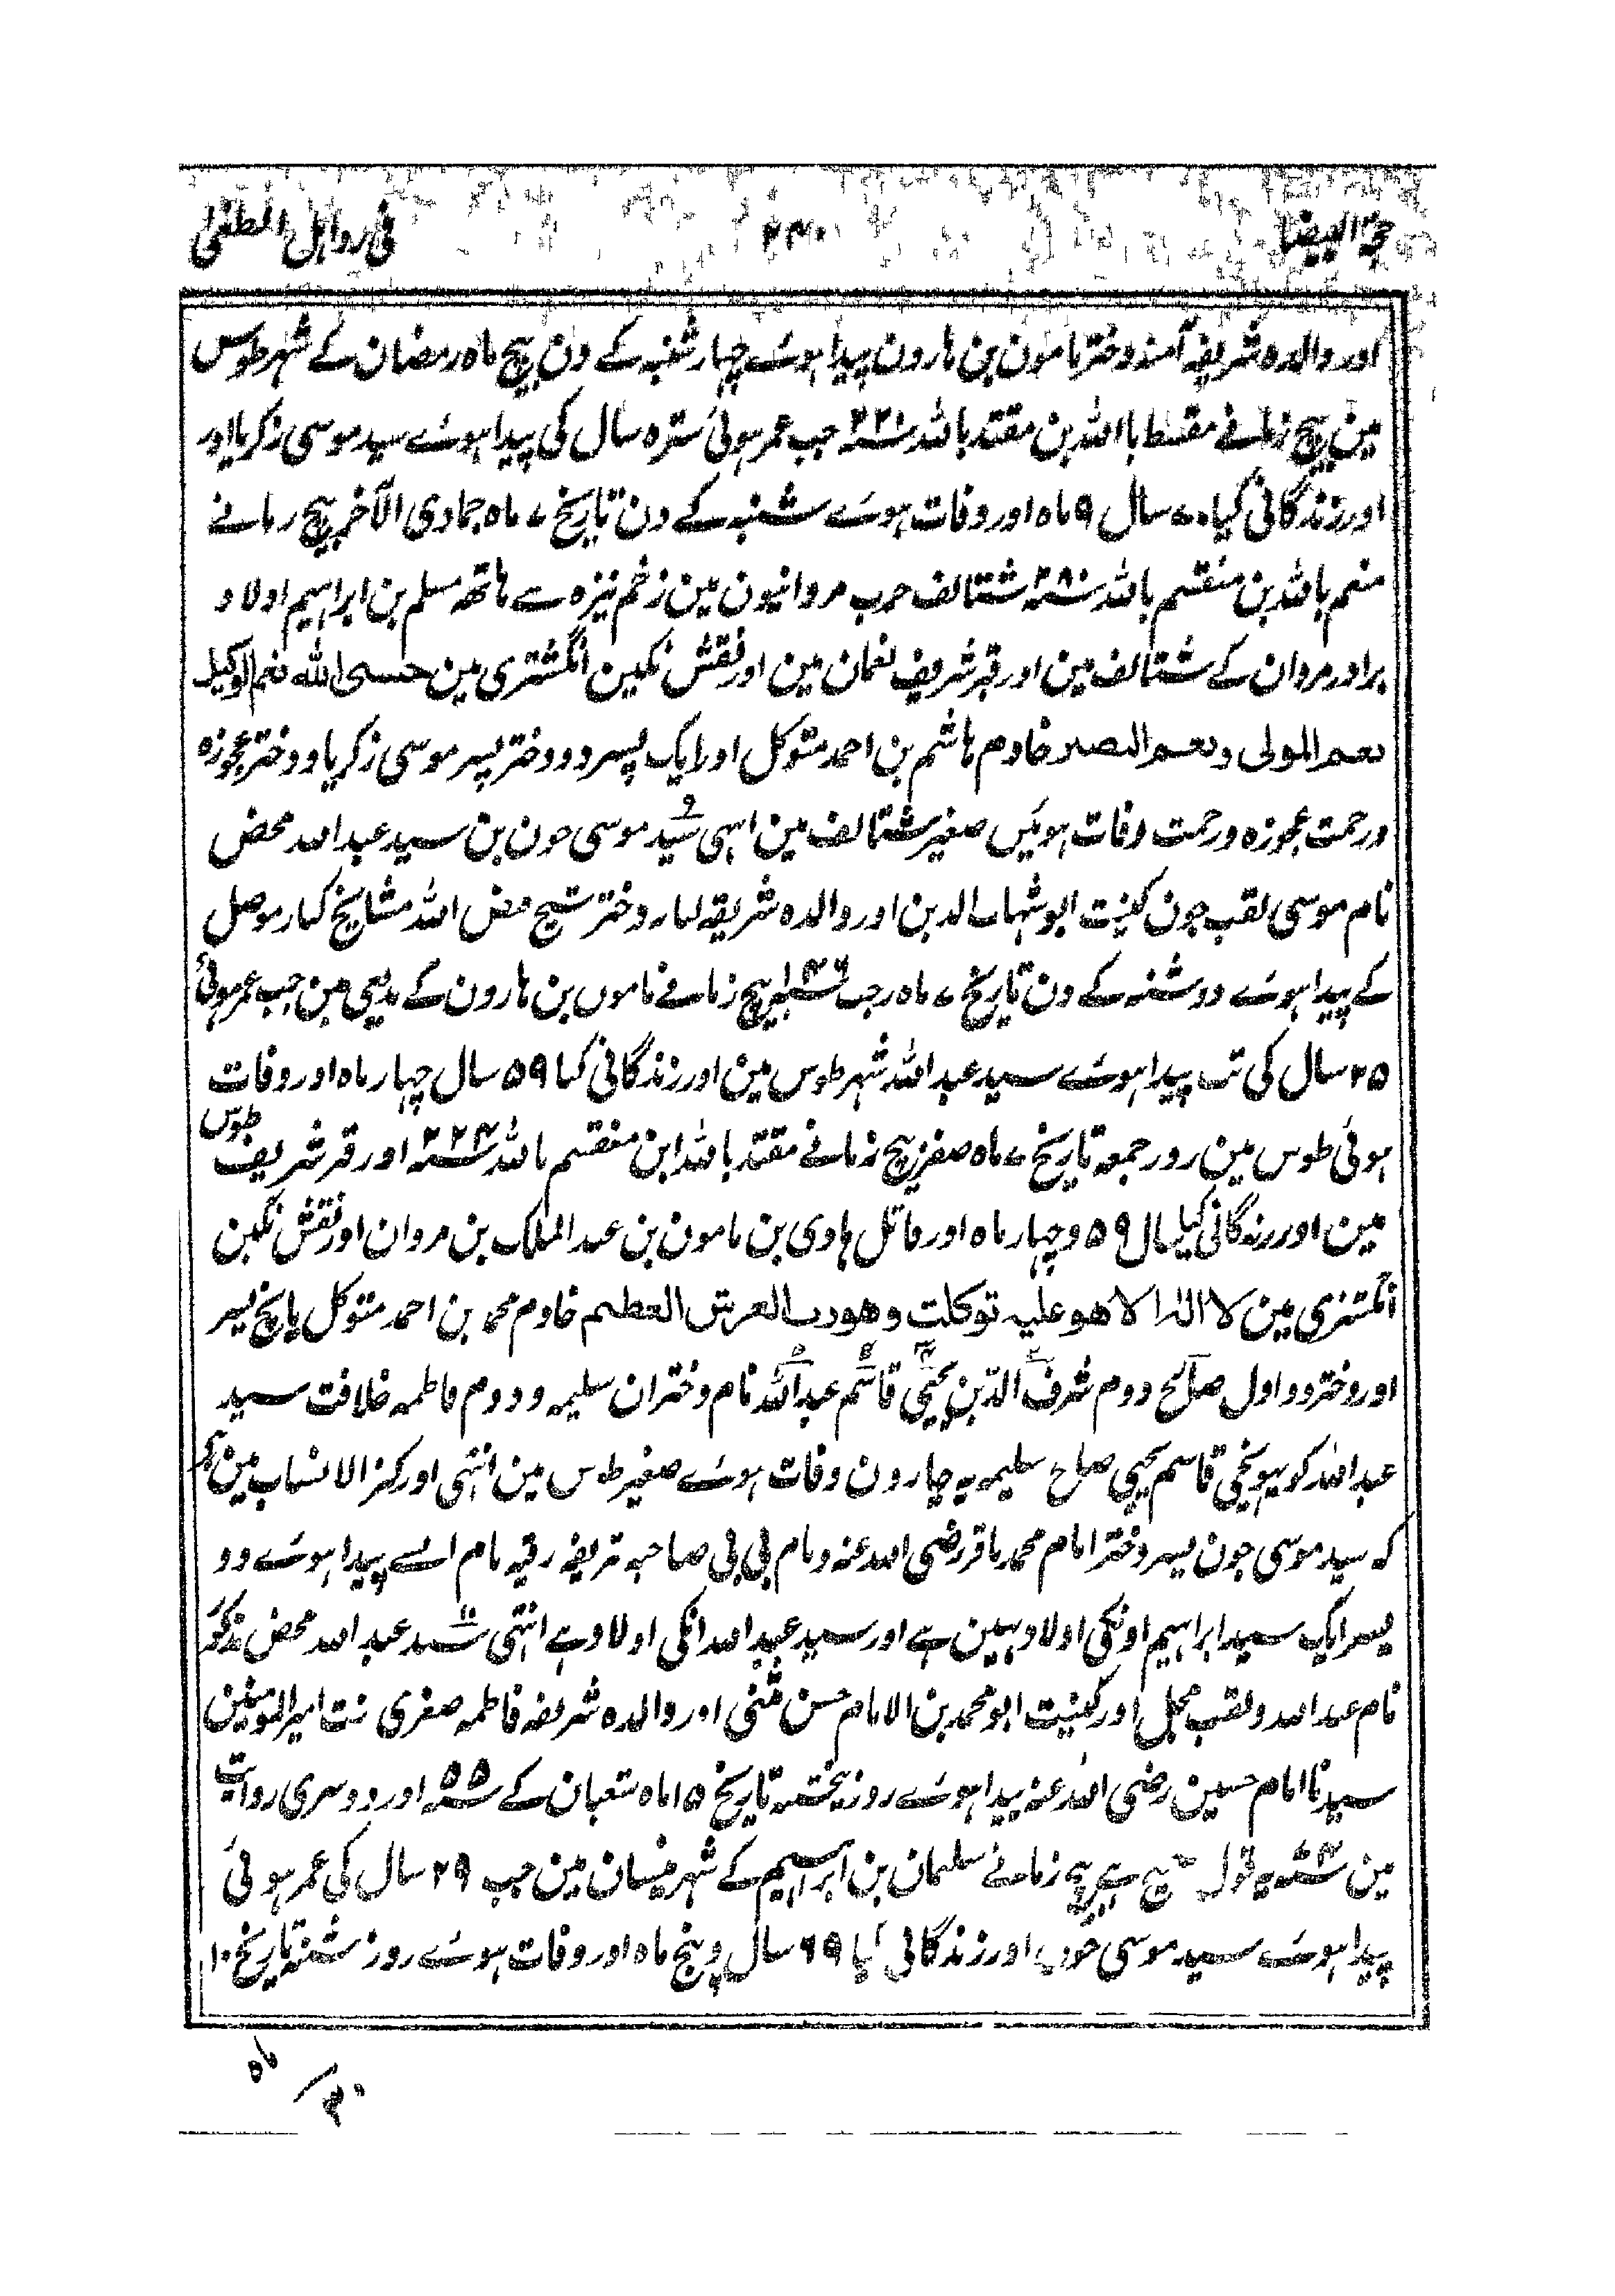 حجة البیضا ۲۳۰ فی
اور والدہ شریفہ آمنہ دختر مامون بن ہارون پیدا ہوئے چہار شنبہ کے دن بیچ ماہ رمضان کے شہر طوس
مین بیچ زمانے باللہ بن مقتد باللہ جب عمر ہوئی سترہ سال کی پیدا ہوئے سید موسی زکریا اور
اور زندگانی کیا ۷۰ سال ۹ ماہ اور وفات ہوئے شنبہ کے دن تاریخ ۷ ماہ جمادی الآخر بیچ زمانے
باللہ بن منقسم باللہ شتالف حرب مروانیون مین زخم نیزہ سے ہاتھ مسلم بن ابراہیم اولاد
برادر مروان کے شتالف مین اور قبر شریف نعمان مین اور نقش نگین انگشتری مین حسبی اللہ نعم الوکیل
نعم المولی ونعم النصیر خادم ہاشم بن احمد متوکل اور ایک پسر دو دختر پسر موسی زکریا و دختر عجوزہ
ورحمت عجوزہ ورحمت وفات ہوئیں صغیر شتالف مین انتہی سید موسی جون بن سید عبد اللہ محض
نام موسی لقب جون کنیت ابو شہاب الدین اور والدہ شریفہ دختر شیخ اللہ مشایخ کبار موصل
کے پیدا ہوئے دوشنبہ کے دن تاریخ ۷ ماہ رجب بیچ زمانے مامون بن ہارون کے مین جب عمر ہوئی
۲۵ سال کی تب پیدا ہوئے سید عبد اللہ شہر طوس مین اور زندگانی کیا ۵۹ سال چہار ماہ اور وفات
ہوئی طوس مین روز جمعہ تاریخ ۷ ماہ صفر بیچ زمانے مقتد باللہ ابن منقسم باللہ سنہ ۲۲۴ اور قبر شریف طوس
مین اور زندگانی کیا سال ۵۹ و چہار ماہ اور قاتل ہادی بن مامون بن عبد الملک بن مروان اور نقش نگین
انگشتری مین لا الہ الا هو علیہ توکلت وهو رب العرش العظیم خادم محمد بن احمد متوکل پانچ پسر
اور دختر دو اول صالح دوم شرف الدین یحیی قاسم عبد اللہ نام دختران سلیمہ و دوم فاطمہ خلافت سید
عبد اللہ کو پہونچی قاسم یحیی صالح سلیمہ یہ چارون وفات ہوئے صغیر طوس مین انتہی اور کنز الانساب مین ہے
کہ سید موسی جون پسر دختر امام محمد باقر رضی اللہ عنہ و نام بی بی صاحبہ شریفہ رقیہ نام اسے پیدا ہوئے دو
پسر ایک سید ابراہیم اونکی اولاد نہین ہے اور سید عبد اللہ انکی اولاد ہے انتہی سید عبد اللہ محض مذکور
نام عبد اللہ و لقب مجل اور کنیت ابو محمد بن الامام حسن مثنی اور والدہ شریفہ فاطمہ صغری بنت امیر المومنین
سیدنا امام حسین رضی اللہ عنہ پیدا ہوئے روز تاریخ ۱۵ ماہ شعبان کے سنہ ۵۵ اور دوسری روایت
مین یہ قول زمانے سلیمان بن ابراہیم کے شہر مین جب ۲۹ سال کی عمر ہوئی
پیدا ہوئے سید موسی جون اور زندگانی کیا ۶۹ سال و پنج ماہ اور وفات ہوئے روز شنبہ تاریخ ۱۰
ماہ